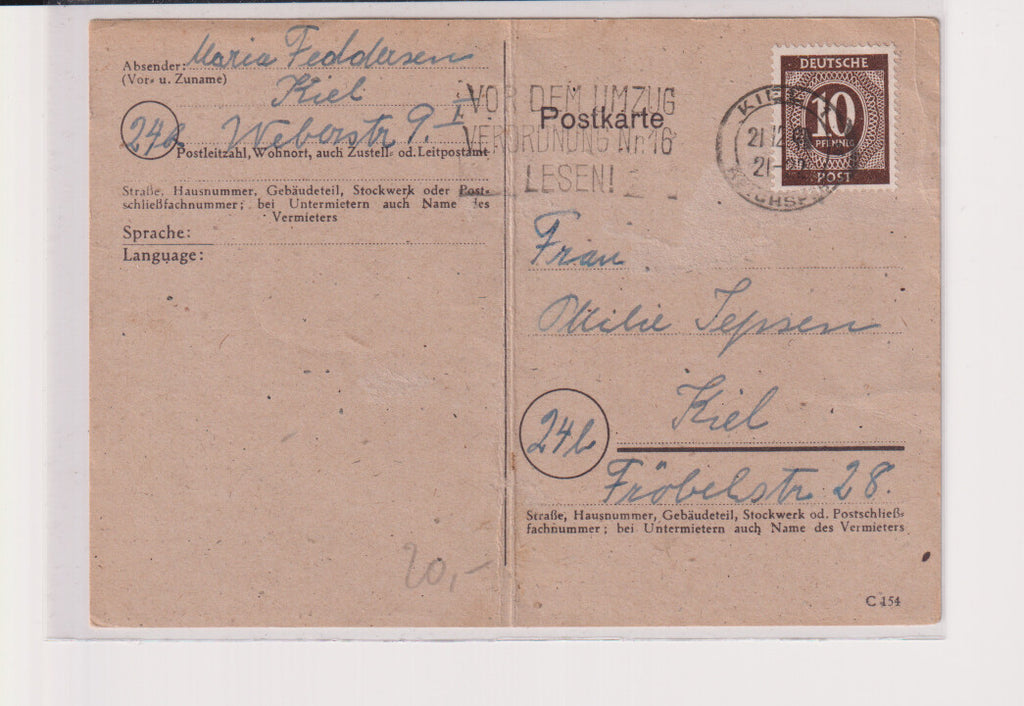 Absender: Maria Feddersen
(Vor- u. Zuname)
Kiel
24b Weberstr 9. I
Postleitzahl, Wohnort, auch Zustell- od. Leitpostamt
Straße, Hausnummer, Gebäudeteil, Stockwerk oder Post-
schließfachnummer; bei Untermietern auch Name des
Vermieters
Sprache:
Language:
20,-
VOR DEM UMZUG
VERORDNUNG Nr. 16
LESEN!
Postkarte
KIEL
21.12
21-
DEUTSCHE
10
PFENNIG
POST
Frau
Milie Jepsen
Kiel
24b
Fröbelstr 28.
Straße, Hausnummer, Gebäudeteil, Stockwerk od. Postschließ-
fachnummer; bei Untermietern auch Name des Vermieters
C 154